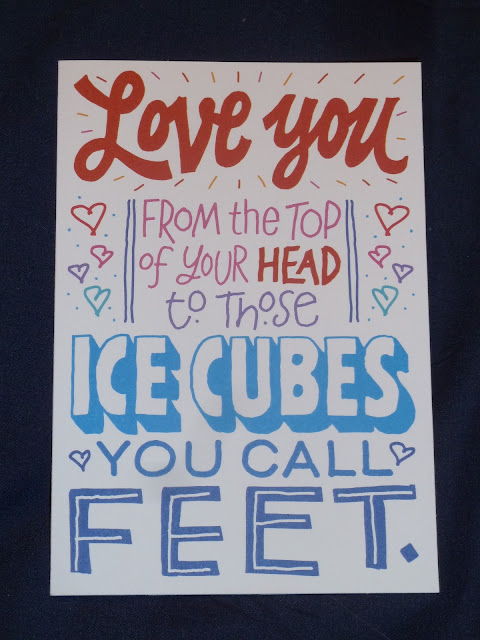 Love you
FROM the TOP
of YOUR HEAD
to Those
ICE CUBES
YOU CALL
FEET.